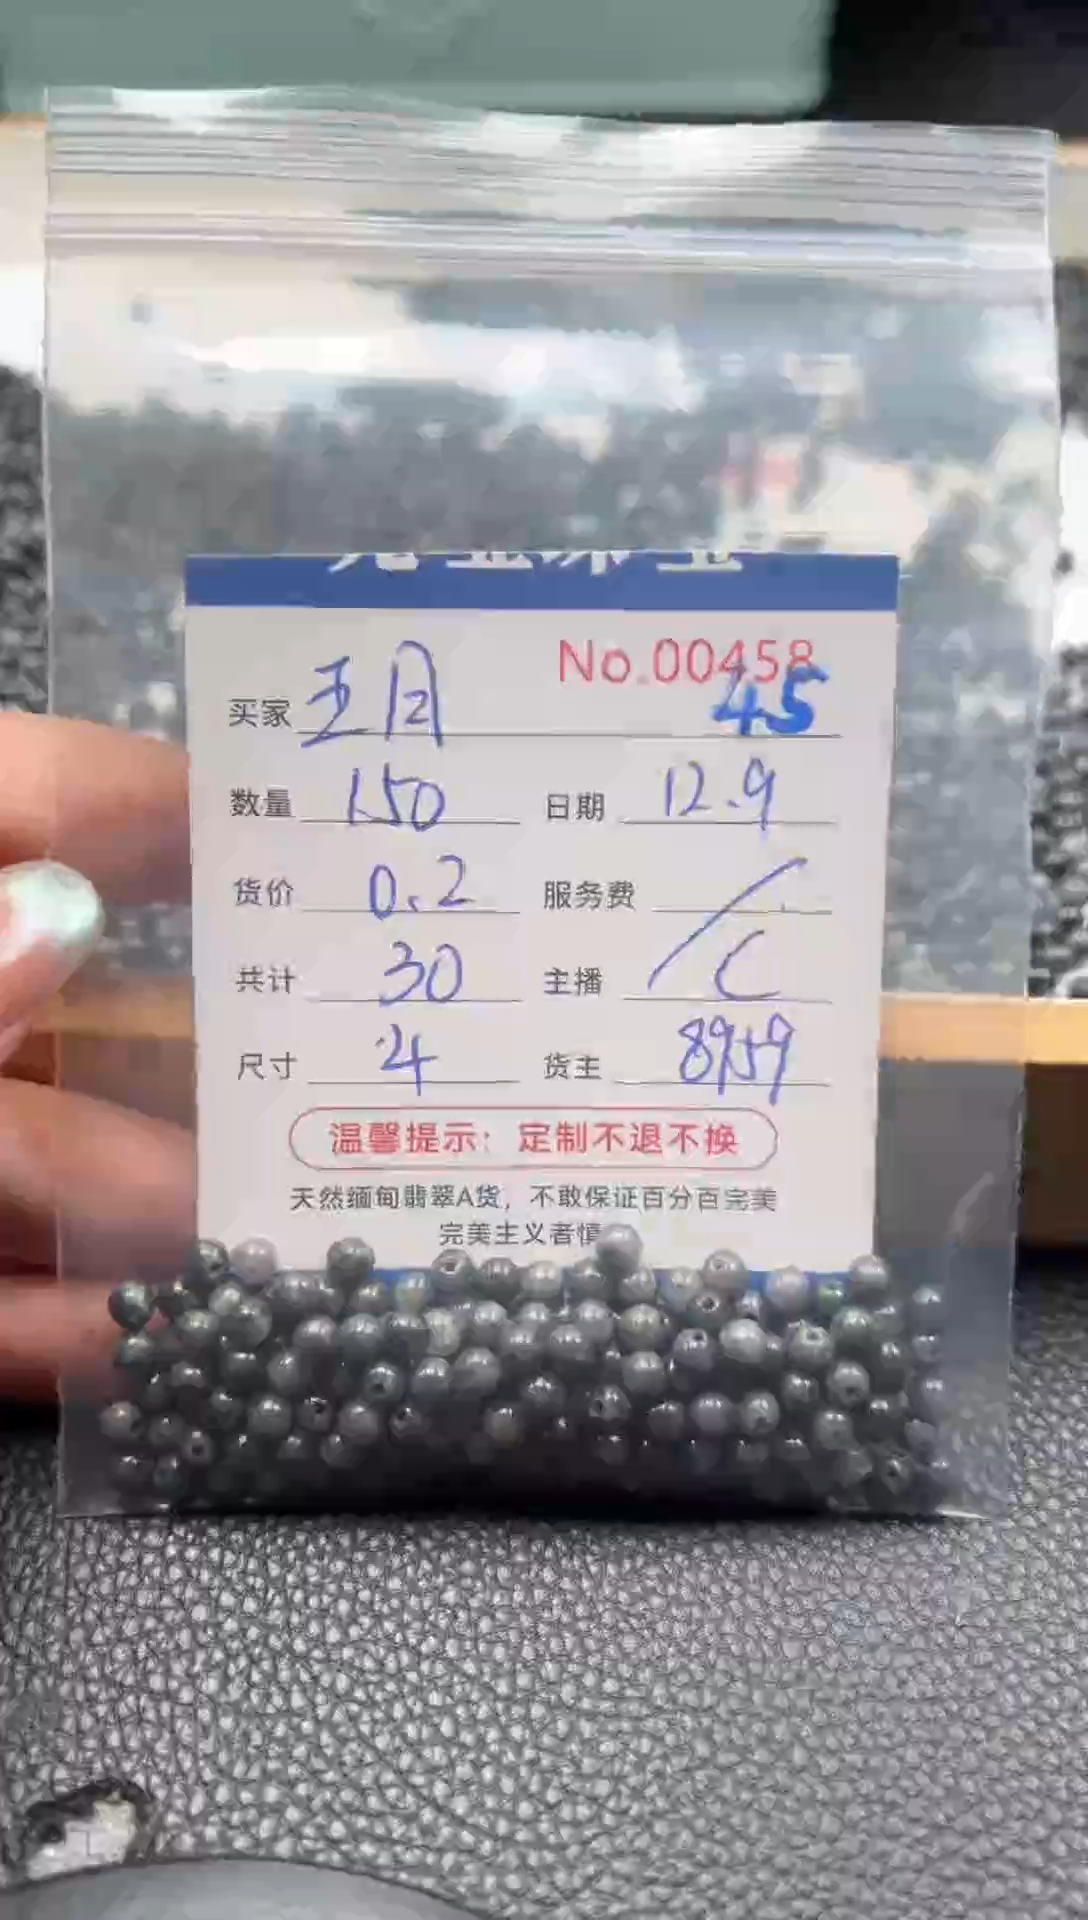 No.00458
买家 王月 45
数量 150 日期 12.9
货价 0.2 服务费 /
共计 30 主播 C
尺寸 4 货主 8959
温馨提示：定制不退不换
天然缅甸翡翠A货，不敢保证百分百完美
完美主义者慎